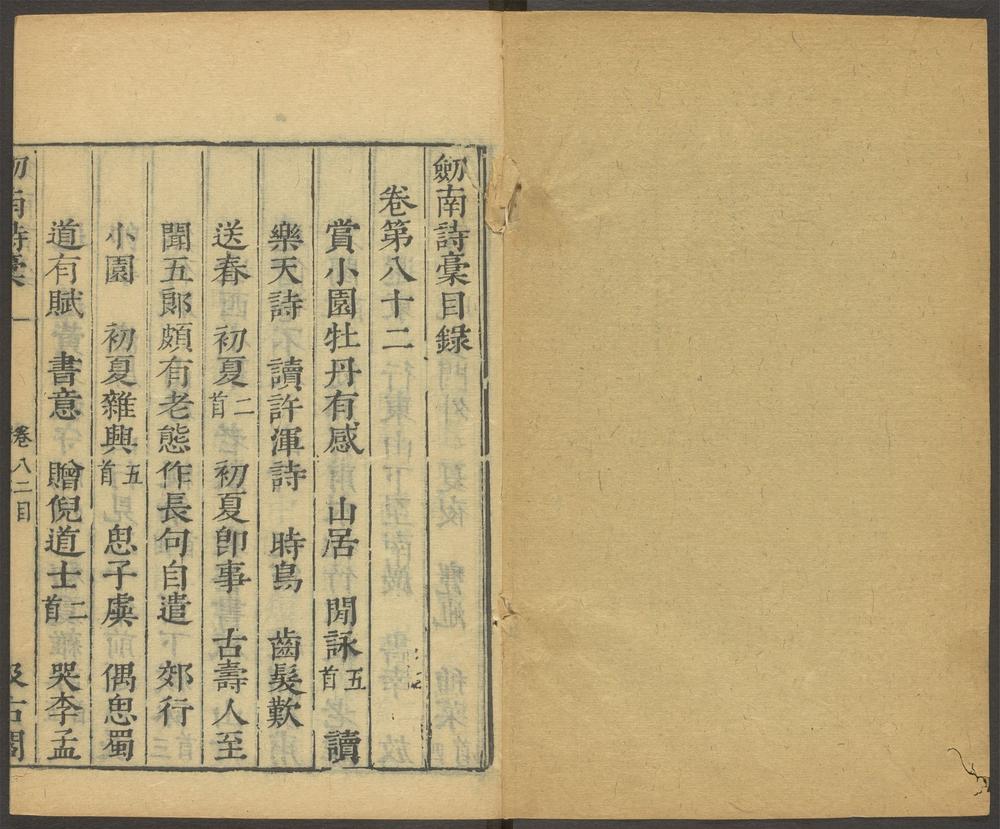 劒南詩稾目錄
卷第八十二
賞小園牡丹有感　山居　閒詠五首　讀
樂天詩　讀許渾詩　時鳥　齒髮歎
送春　初夏二首　初夏卽事　古壽人至
聞五郞頗有老態作長句自遣　郊行
小園　初夏雜興五首　思子虡　偶思蜀
道有賦　書意　贈倪道士二首　哭李孟
南詩稾　卷八二目　汲古閣